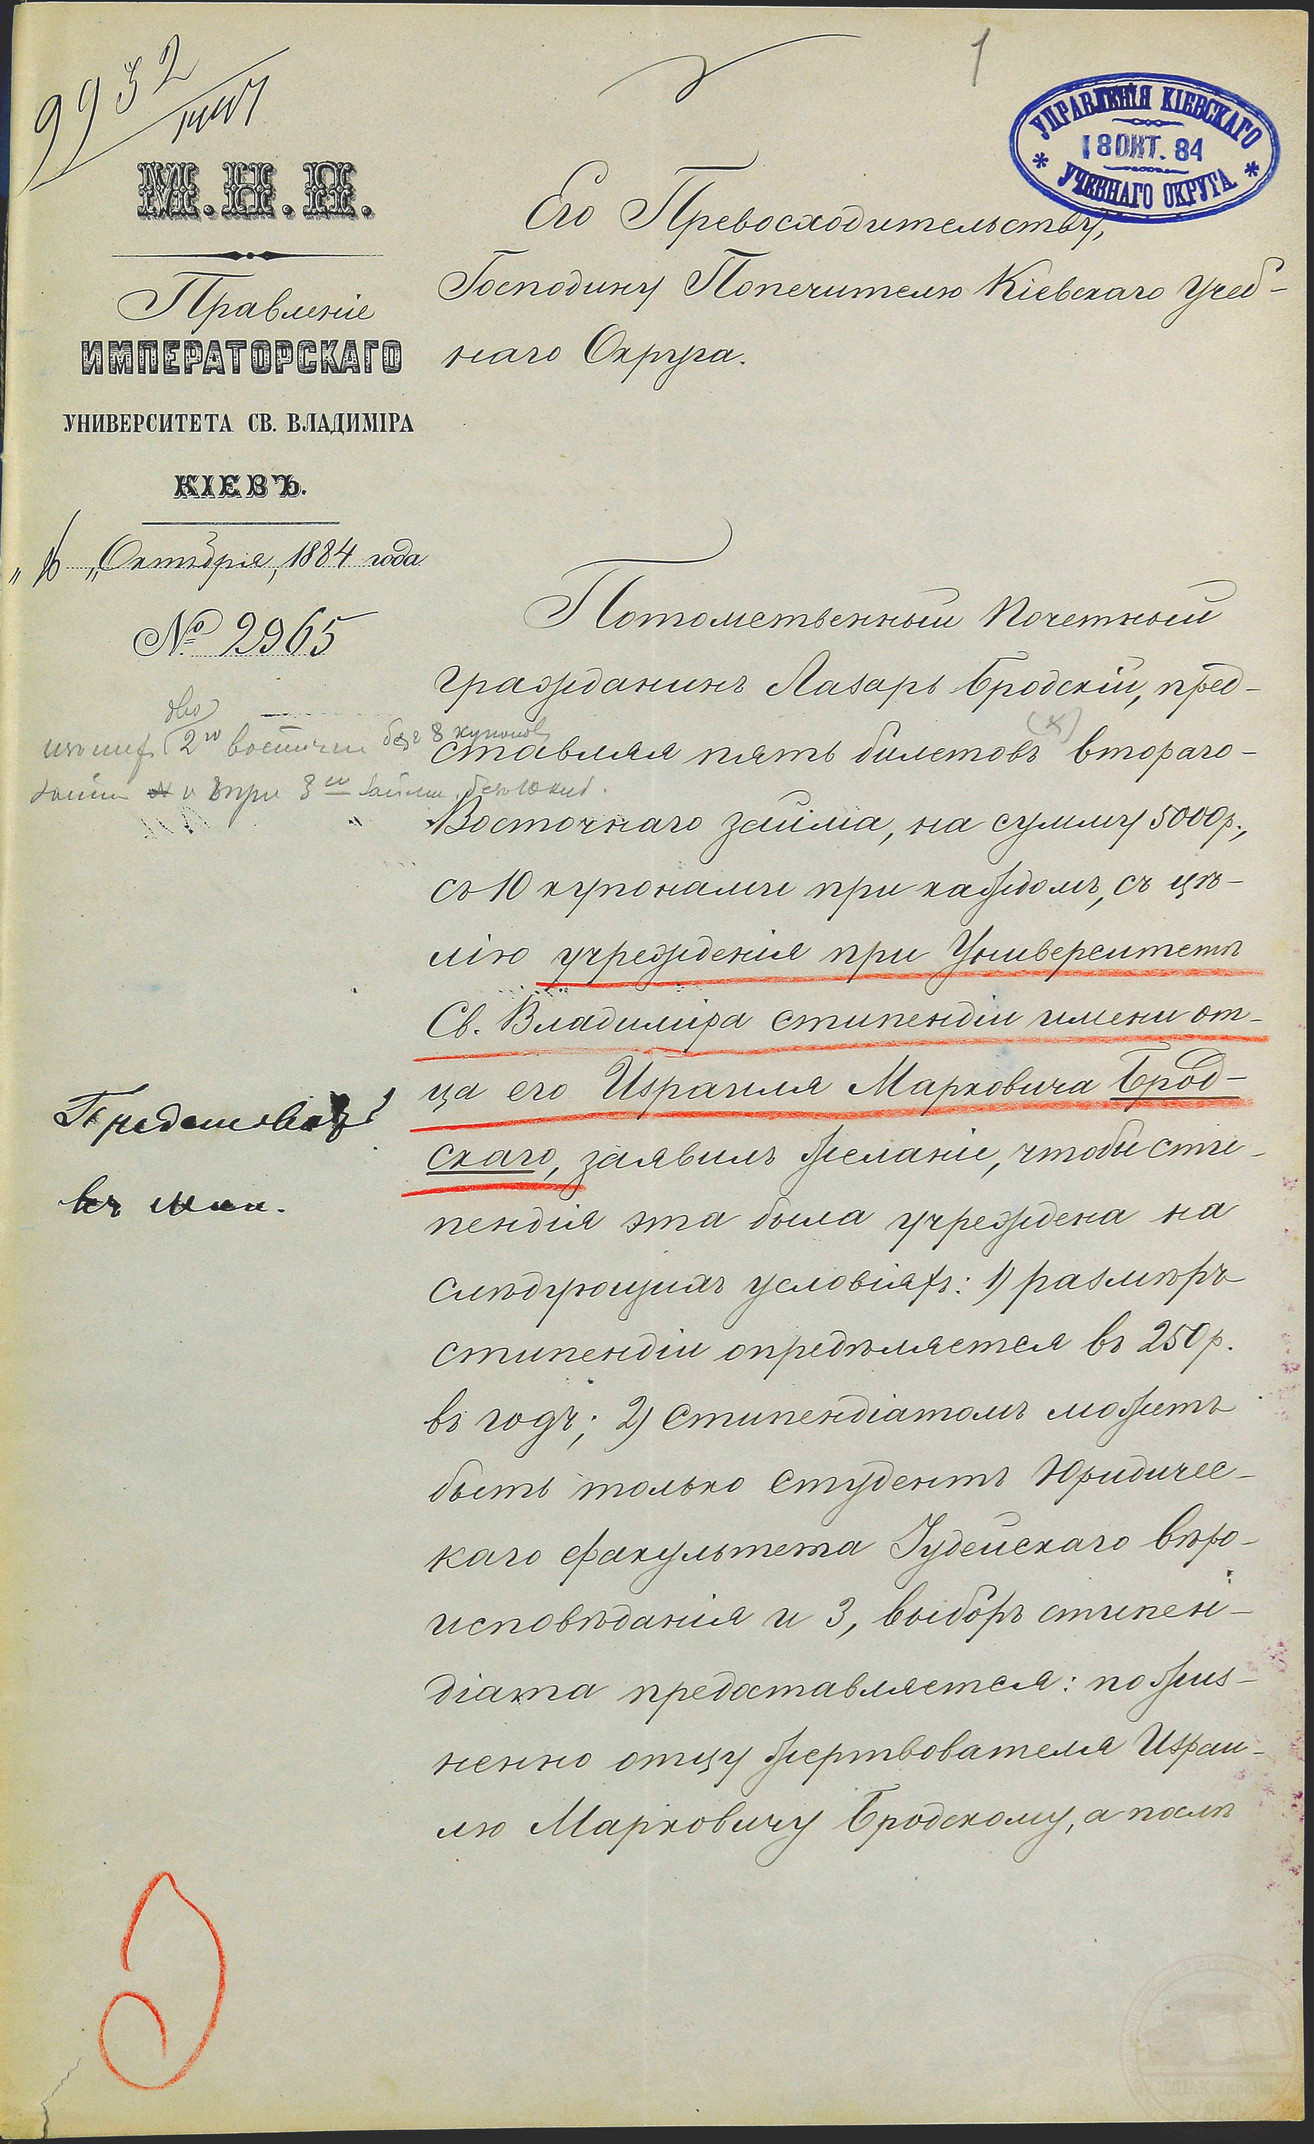 1
9932
УПРАВЛЕНІЯ КІЕВСКАГО
18 ОКТ. 84
УЧЕБНАГО ОКРУГА
М.Н.П.
Правленіе
ИМПЕРАТОРСКАГО
УНИВЕРСИТЕТА СВ. ВЛАДИМІРА
КІЕВЪ.
"16" Октября, 1884 года
№ 2965
Его Превосходительству,
Господину Попечителю Кіевскаго Учеб-
наго Округа.
Потомственный Почетный
гражданинъ Лазарь Бродскій, пред-
ставляя пять билетовъ (х) втораго-
Восточнаго займа, на сумму 5000 р.,
съ 10 купонами при каждомъ, съ цѣ-
лію учрежденія при Университетѣ
Св. Владиміра стипендіи имени от-
ца его Израиля Марковича Брод-
скаго, заявилъ желаніе, чтобы сти-
пендія эта была учреждена на
слѣдующихъ условіяхъ: 1) размѣръ
стипендіи опредѣляется въ 250 р.
въ годъ; 2) стипендіатомъ можетъ
быть только студентъ Юридичес-
каго факультета Іудейскаго вѣро-
исповѣданія и 3, выборъ стипен-
діата предоставляется: пожиз-
ненно отцу жертвователя Израи-
лю Марковичу Бродскому, а послѣ
два
2го восточн без 8 купонов
и 3 при 3го займа
въ мин.